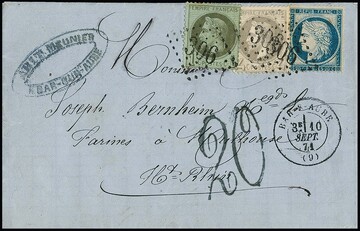 MEUNIER
BAR-SUR-AUBE
EMPIRE FRANÇAIS
306
306
Monsieur
Joseph Bernheim
Farines à Mulhouse
Ht. Rhin
20
BAR-S-AUBE
3E 10
SEPT.
71
(9)